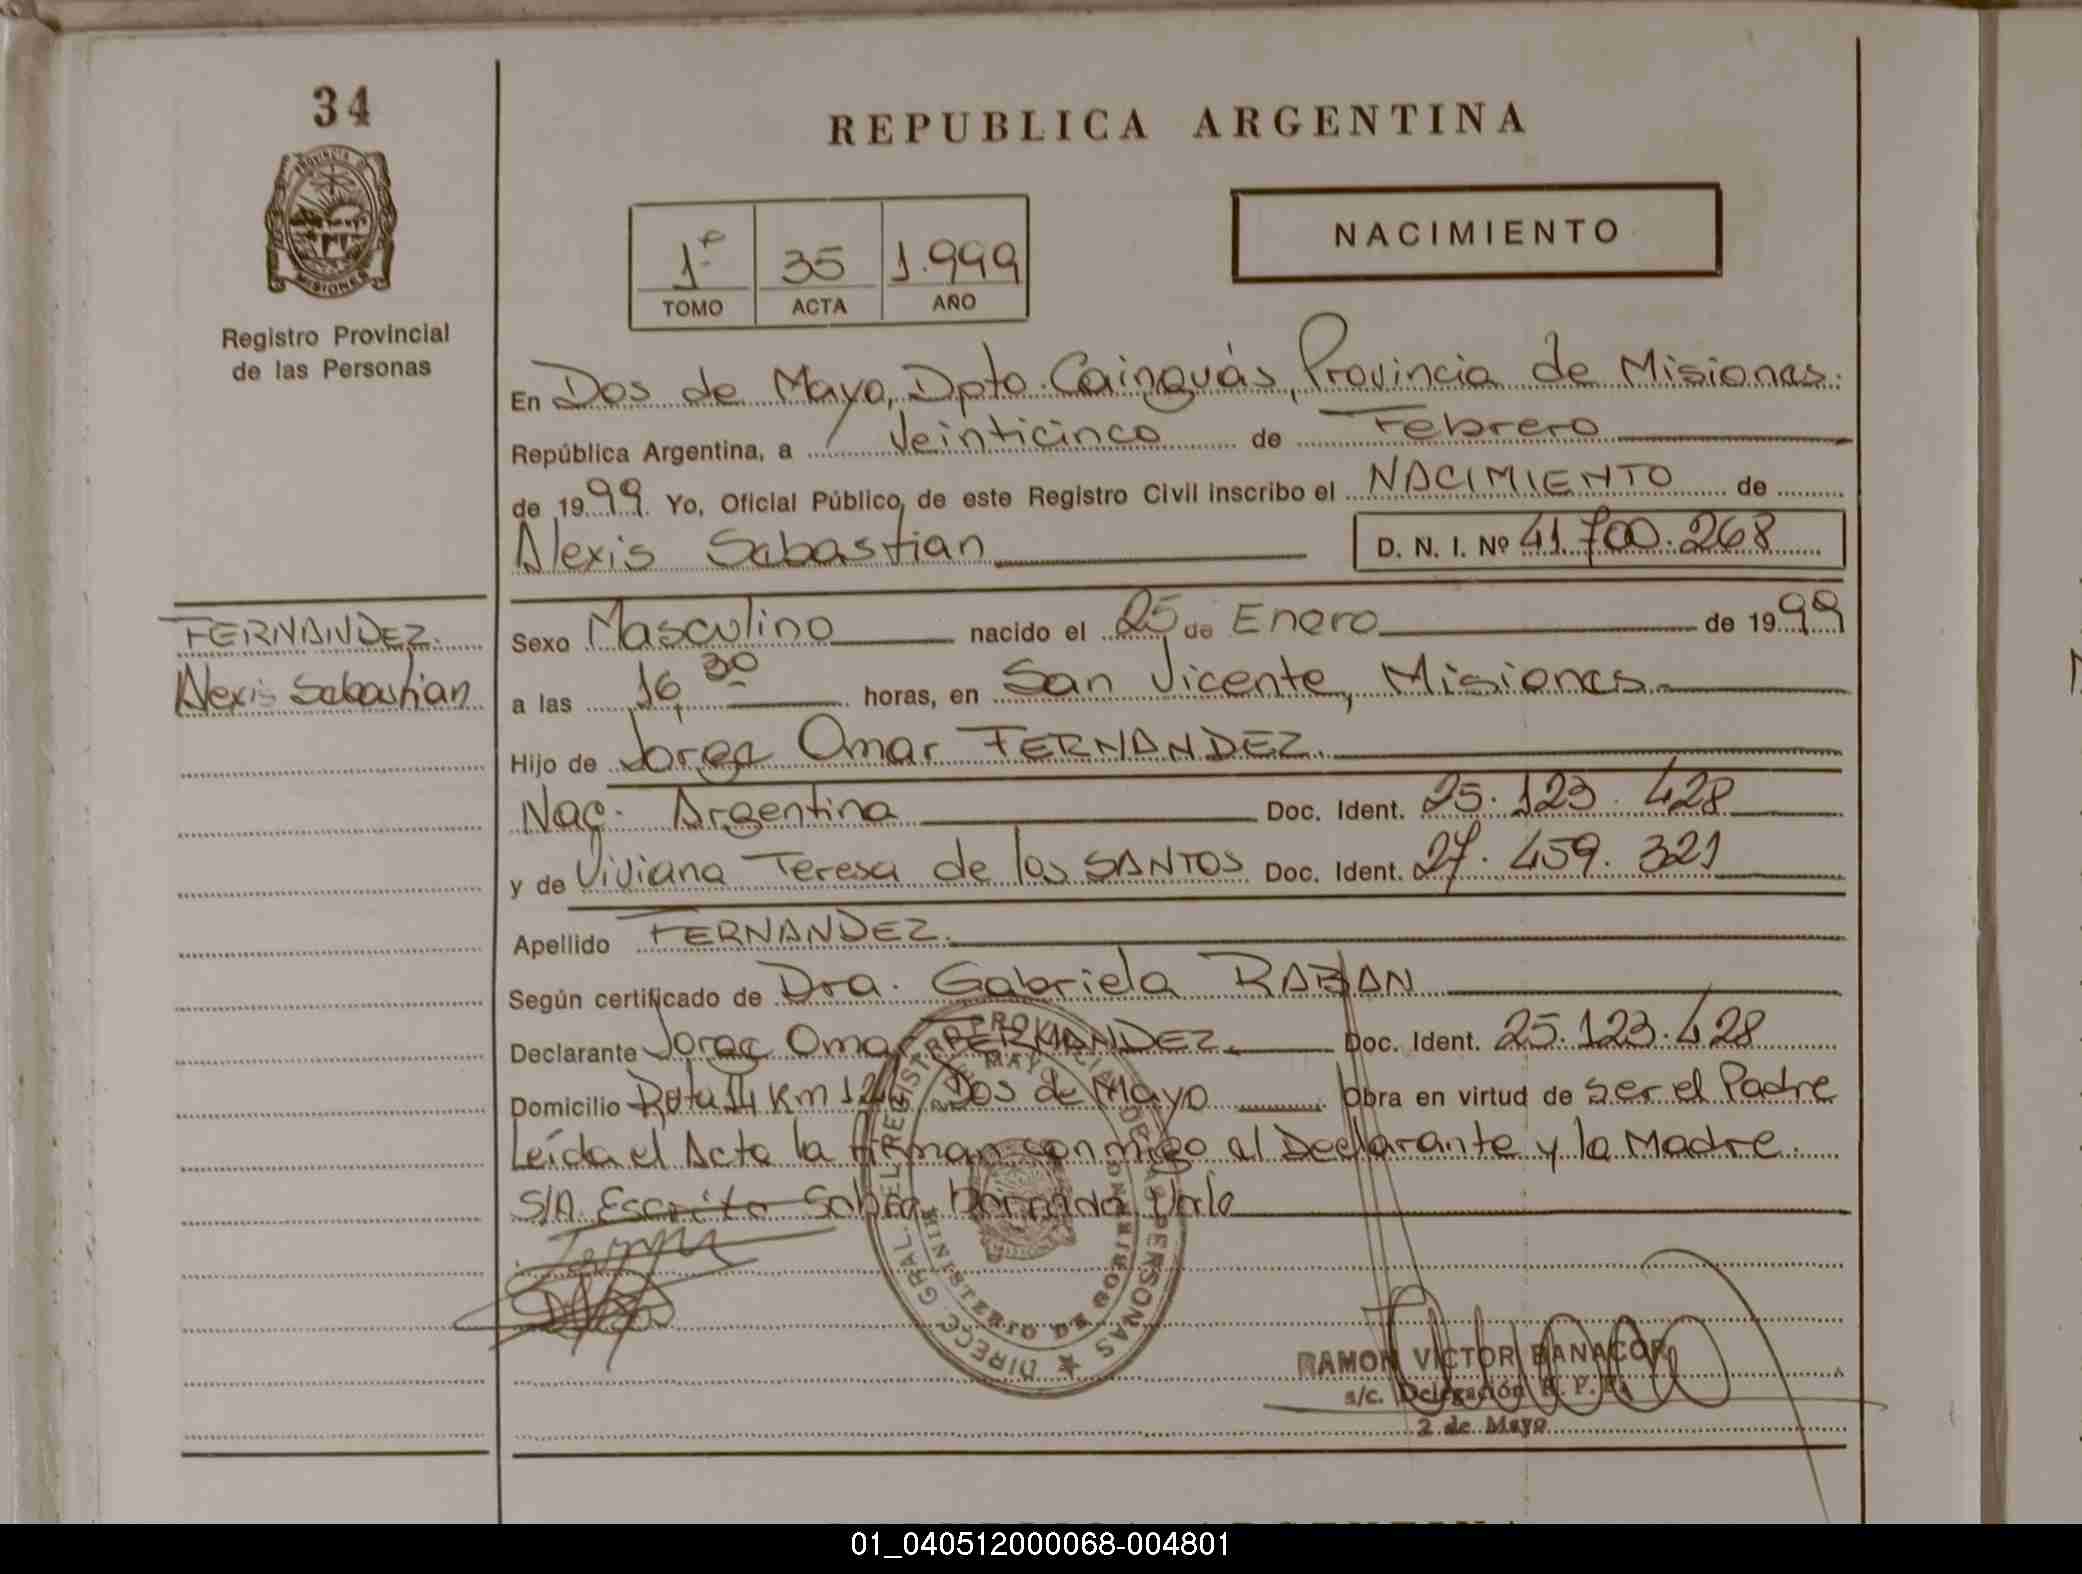 34
REPUBLICA ARGENTINA
PROVINCIA DE
MISIONES
Registro Provincial
de las Personas
1º 35 1.999
TOMO ACTA AÑO
NACIMIENTO
En Dos de Mayo, Dpto. Cainguás, Provincia de Misiones.
República Argentina, a Veinticinco de Febrero
de 1999 Yo, Oficial Público, de este Registro Civil inscribo el NACIMIENTO de
Alexis Sebastian D. N. I. Nº 41.700.268
FERNANDEZ
Alexis Sebastian
Sexo Masculino nacido el 25 de Enero de 1999
a las 16,30 horas, en San Vicente, Misiones
Hijo de Jorge Omar FERNANDEZ
Nac. Argentina Doc. Ident. 25.123.428
y de Viviana Teresa de los SANTOS Doc. Ident. 27.459.321
Apellido FERNANDEZ
Según certificado de Dra. Gabriela RABAN
Declarante Jorge Omar FERNANDEZ Doc. Ident. 25.123.428
Domicilio Ruta 14 Km Dos de Mayo Obra en virtud de ser el Padre
Leída el Acta la firman conmigo el Declarante y la Madre.
S/A Escrito Sobre borrado Vale
DIRECC. GRAL. DEL REGISTRO PROVINCIAL DE LAS PERSONAS
MINISTERIO DE GOBIERNO
DE MAYO
RAMON VICTOR BANACOR
a/c. Delegación R. P. P.
2 de Mayo
01_040512000068-004801